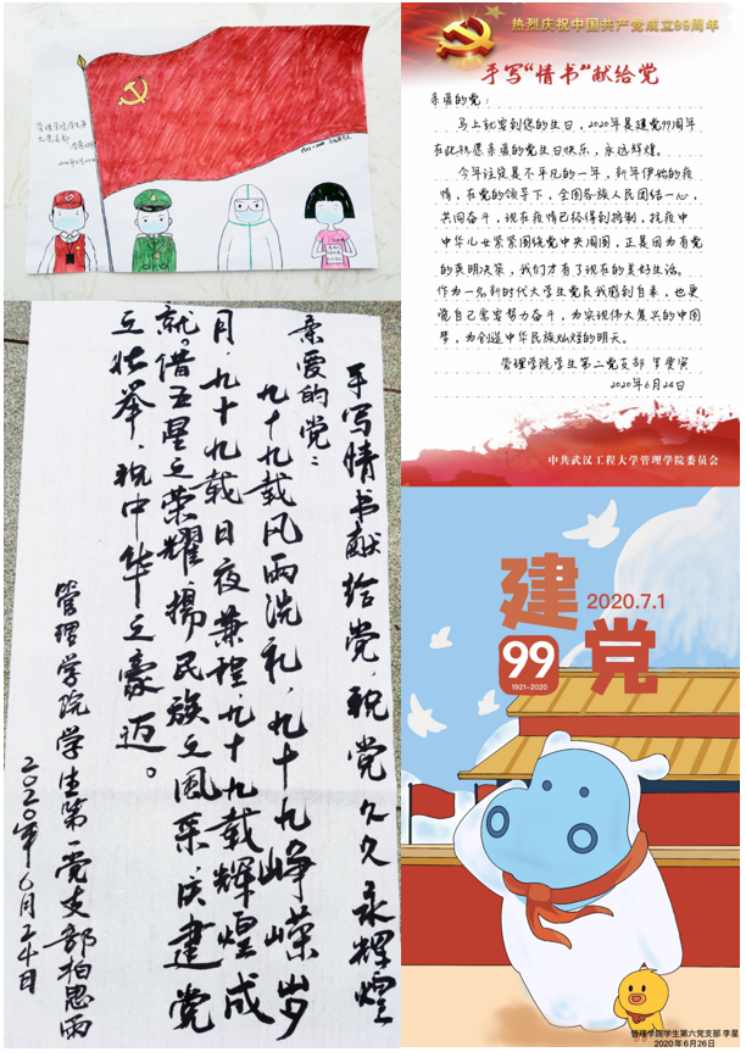 热烈庆祝中国共产党成立99周年
手写“情书”献给党
亲爱的党：
马上就要到您的生日，2020年是建党99周年
在此热愿亲爱的党生日快乐，永远辉煌。
今年注定是不平凡的一年，新年伊始的疫
情，在党的领导下，全国各族人民团结一心，
共同奋斗，现在疫情已经得到控制，抗疫中
中华儿女紧紧围绕党中央周围，正是因为有党
的英明决策，我们才有了现在的美好生活。
作为一名新时代大学生党员我感到自豪，也更
觉自己需要努力奋斗，为实现伟大复兴的中国
梦，为创造中华民族灿烂的明天。
管理学院学生第二党支部
2020年6月24日
中共武汉工程大学管理学院委员会
手写情书献给党，祝党久久永辉煌
亲爱的党：
九十九载风雨洗礼，九十九峥嵘岁
月，九十九载日夜兼程，九十九载辉煌成
就。借五星之荣耀，扬民族之风采，庆建党
之壮举，祝中华之豪迈。
管理学院学生第一党支部柏思雨
2020年6月24日
建党
2020.7.1
99
1921-2020
管理学院学生第六党支部 李星
2020年6月26日